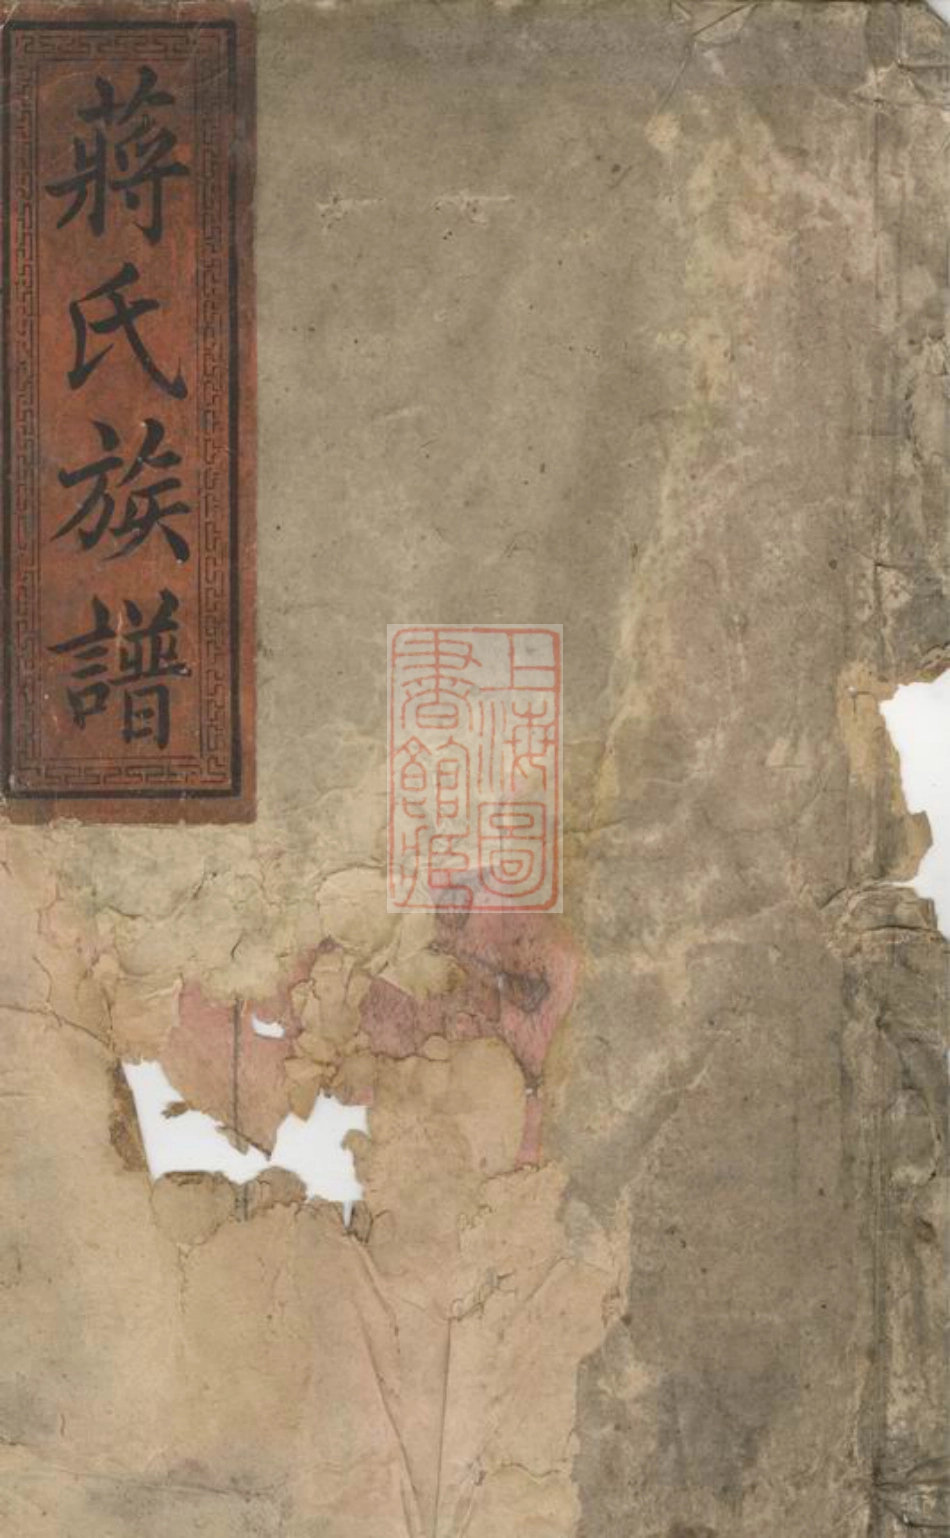 蔣氏族譜
上海圖
書館藏